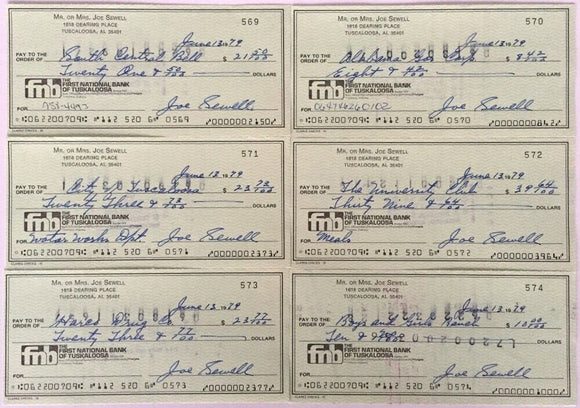 MR. OR MRS. JOE SEWELL 569
1818 DEARING PLACE
TUSCALOOSA, AL 35401
June 13 1979
PAY TO THE
ORDER OF South Central Bell $ 21 50/00
Twenty One & 50/00 DOLLARS
fnb
THE
FIRST NATIONAL BANK
OF TUSKALOOSA
FOR 758-4493 Joe Sewell
⑆062200709⑆ ⑈112 520 6⑈ 0569 ⑈0000002150⑈
MR. OR MRS. JOE SEWELL 570
1818 DEARING PLACE
TUSCALOOSA, AL 35401
June 13 1979
PAY TO THE
ORDER OF Alabama Gas Corp. $ 8 42/00
Eight & 42/00 DOLLARS
fnb
THE
FIRST NATIONAL BANK
OF TUSKALOOSA
FOR Joe Sewell
⑆062200709⑆ ⑈112 520 6⑈ 0570 ⑈0000000842⑈
MR. OR MRS. JOE SEWELL 571
1818 DEARING PLACE
TUSCALOOSA, AL 35401
June 13 1979
PAY TO THE
ORDER OF City of Tuscaloosa $ 23 73/00
Twenty Three & 73/00 DOLLARS
fnb
THE
FIRST NATIONAL BANK
OF TUSKALOOSA
FOR Water Works Dept. Joe Sewell
⑆062200709⑆ ⑈112 520 6⑈ 0571 ⑈0000002373⑈
MR. OR MRS. JOE SEWELL 572
1818 DEARING PLACE
TUSCALOOSA, AL 35401
June 13 1979
PAY TO THE
ORDER OF The University Club $ 39 64/00
Thirty Nine & 64/00 DOLLARS
fnb
THE
FIRST NATIONAL BANK
OF TUSKALOOSA
FOR Meals Joe Sewell
⑆062200709⑆ ⑈112 520 6⑈ 0572 ⑈0000003964⑈
MR. OR MRS. JOE SEWELL 573
1818 DEARING PLACE
TUSCALOOSA, AL 35401
June 13 1979
PAY TO THE
ORDER OF Drug Co. $ 23 77/00
Twenty Three & 77/00 DOLLARS
fnb
THE
FIRST NATIONAL BANK
OF TUSKALOOSA
FOR Joe Sewell
⑆062200709⑆ ⑈112 520 6⑈ 0573 ⑈0000002377⑈
MR. OR MRS. JOE SEWELL 574
1818 DEARING PLACE
TUSCALOOSA, AL 35401
June 13 1979
PAY TO THE
ORDER OF Boys and Girls Ranch $ 10 00/00
Ten & DOLLARS
fnb
THE
FIRST NATIONAL BANK
OF TUSKALOOSA
FOR Joe Sewell
⑆062200709⑆ ⑈112 520 6⑈ 0574 ⑈0000001000⑈